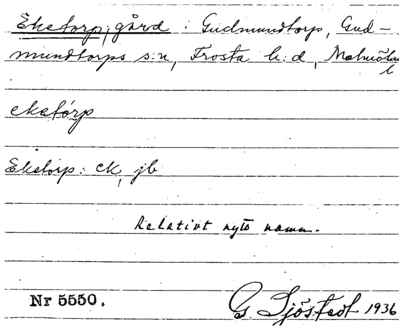 Eketorp, gård : Gudmundtorp, Gud-
mundtorps s:n, Frosta h:d, Malmöhus
l
ekatórp
Eketorp: ek, jb
Relativt nytt namn.
Nr 5550. G Sjöstedt 1936